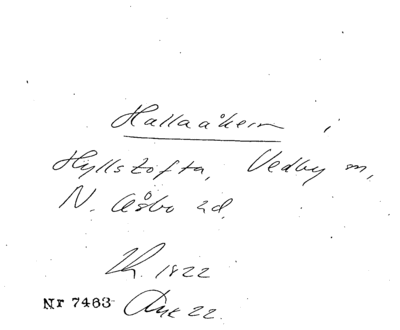 Hallaåkern i
Hyllstofta, Vedby sn,
N. Åsbo hd.
1822
Nr 7463 22.